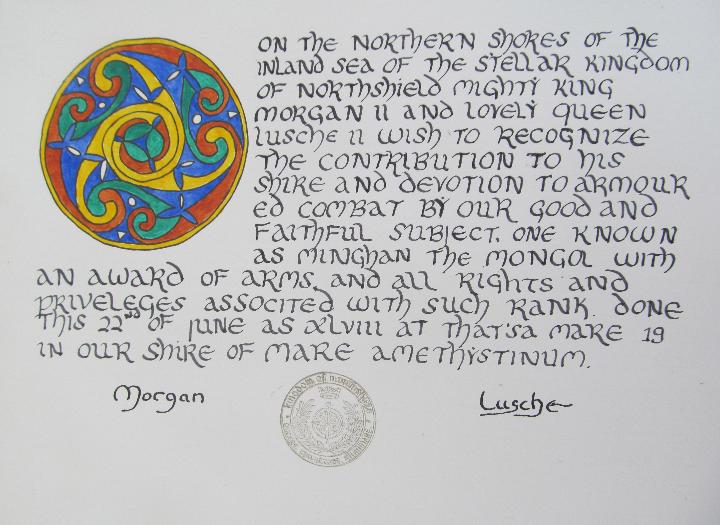 ON THE NORTHERN SHORES OF THE
INLAND SEA OF THE STELLAR KINGDOM
OF NORTHSHIELD MIGHTY KING
MORGAN II AND LOVELY QUEEN
LUSCHE II WISH TO RECOGNIZE
THE CONTRIBUTION TO HIS
SHIRE AND DEVOTION TO ARMOUR
ED COMBAT BY OUR GOOD AND
FAITHFUL SUBJECT, ONE KNOWN
AS MINGHAN THE MONGOL WITH
AN AWARD OF ARMS, AND ALL RIGHTS AND
PRIVELEGES ASSOCITED WITH SUCH RANK. DONE
THIS 22ND OF JUNE AS XLVIII AT THAT'SA MARE 19
IN OUR SHIRE OF MARE AMETHYSTINUM.
Morgan
Lusche
Kingdom of Northshield